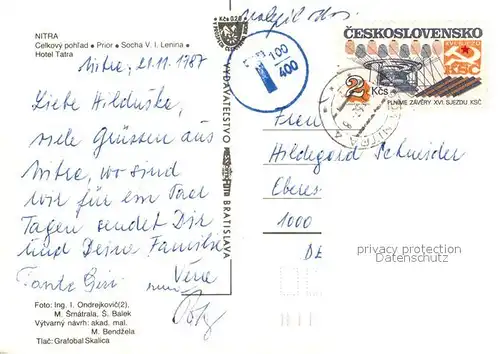 NITRA
Celkový pohľad • Prior • Socha V. I. Lenina •
Hotel Tatra
Nitra, 21.11.1987
Liebe Hilduška,
viele Grüssen aus
Nitra, wo sind
wir für ein Paar
Tagen sendet Dir
und Deine Familie
Tante
Foto: Ing. I. Ondrejkovič(2),
M. Šmátrala, Š. Balek
Výtvarný návrh: akad. mal.
M. Bendžela
Tlač: Grafobal Skalica
Kčs 0,20
VYDAVATEĽSTVO
BRATISLAVA
T
100
400
ČESKOSLOVENSKO
XVII. SJEZD
KSČ
2 Kčs
PLNÍME ZÁVĚRY XVI. SJEZDU KSČ
NITRA 1
Hildegord Schneider
1000
privacy protection
Datenschutz